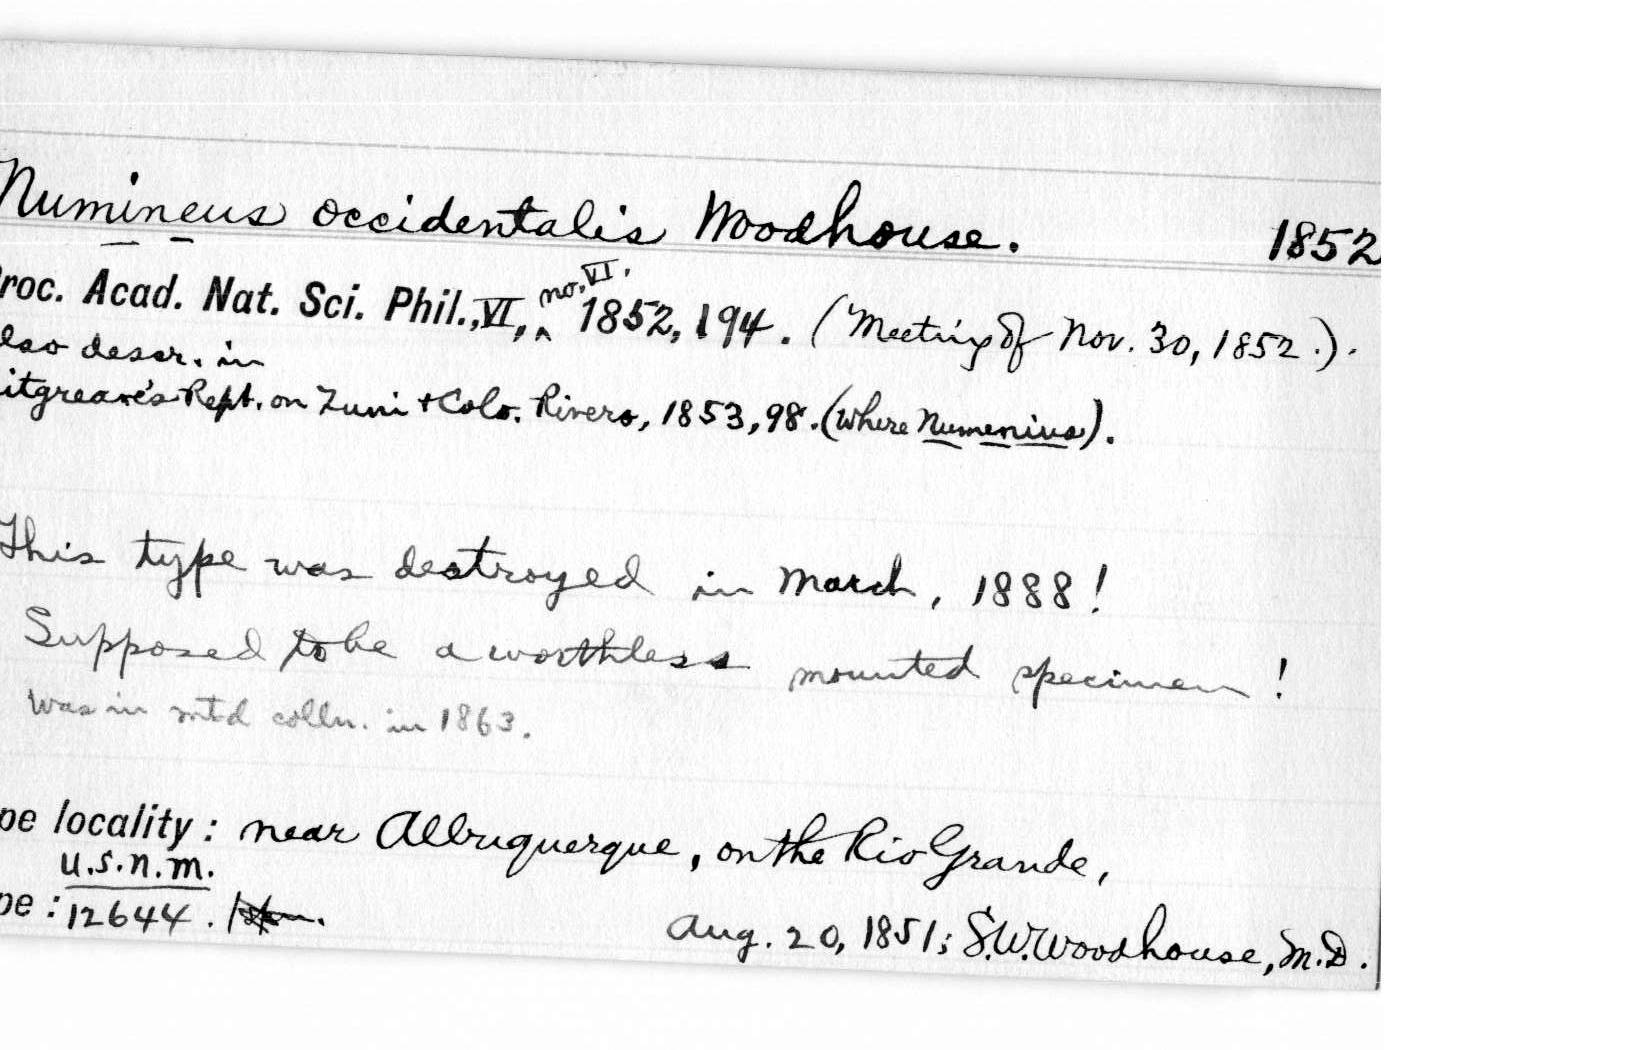 Numineus occidentalis Woodhouse. 1852
Proc. Acad. Nat. Sci. Phil., VI, no. VI. 1852, 194. (Meeting of Nov. 30, 1852.).
lso descr. in
itgreave's Rept. on Zuni + Colo. Rivers, 1853, 98. (Where Numenius).
This type was destroyed in March, 1888!
Supposed to be a worthless mounted specimen!
Was in mtd colln. in 1863.
pe locality: near Albuquerque, on the Rio Grande,
U.S.N.M.
pe: 12644.
Aug. 20, 1851; S.W. Woodhouse, M.D.